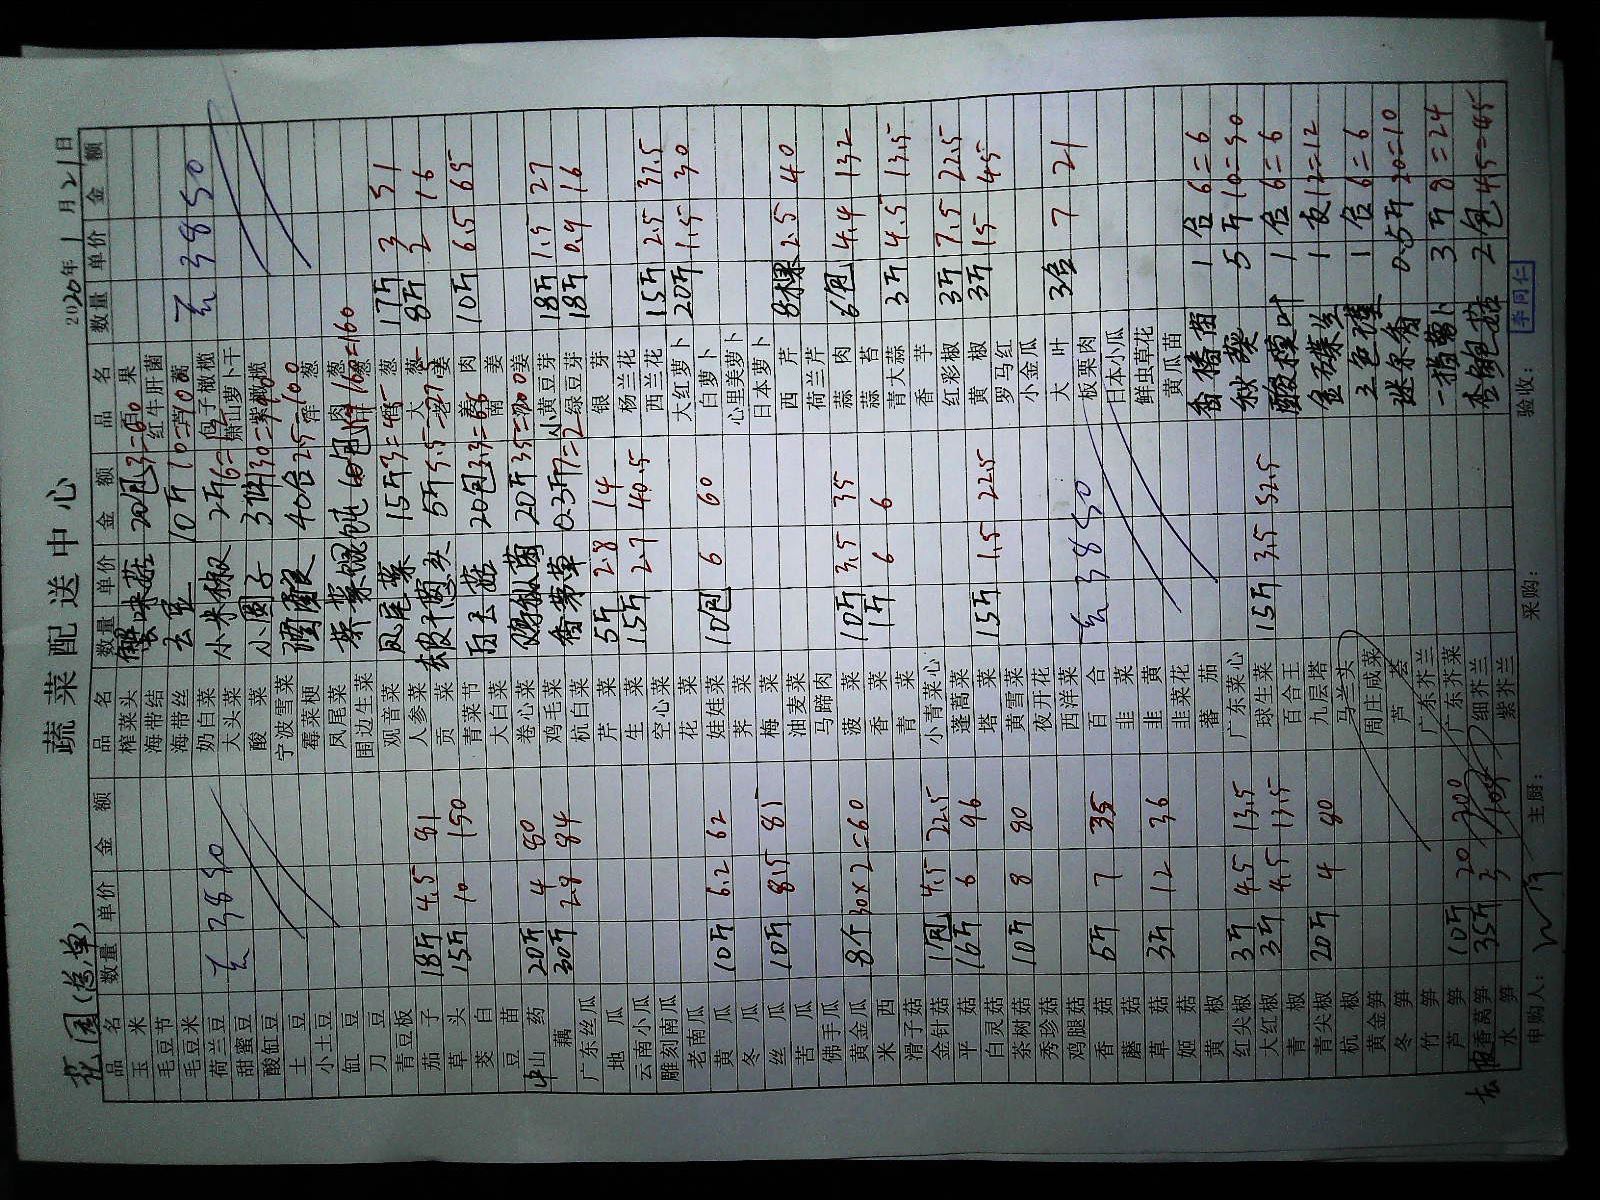 蔬菜配送中心
花园(总单)
2020年1月21日
品名 数量 单价 金额 品名 数量 单价 金额 品名 数量 单价 金额
玉米 榨菜头 蟹味菇 20包 3=60 果
毛豆节 海带结 去豆 10斤 10=100 红牛肝菌
毛豆米 海带丝 芦蒿
荷兰豆 奶白菜 小米椒 2斤 6=12 鸟子橄榄
甜蜜豆 大头菜 萧山萝卜干
酸缸豆 酸菜 小圆子 30=90 紫橄榄
土豆 宁波雪菜 酒酿 40台 25=100 洋葱
小土豆 霉菜梗 葱
缸豆 凤尾菜 紫菜馄饨 10包 16=160 肉
刀豆 围边生菜
青豆板 观音菜 凤尾菜 15斤 3=45 葱 17斤 3 51
茄子 18斤 4.5 81 人参菜 大葱 8斤 2 16
草头 15斤 10 150 贡菜 5斤 5.5=27.5
茭白 青菜节 白玉菇 20包 3.3=66 肉姜 10斤 6.5 65
豆苗 大白菜 南姜
中山药 20斤 4 80 卷心菜 鸡枞菌 20斤 35=700
藕 30斤 2.8 84 鸡毛菜 香茅草 0.3斤 7=2 小黄豆芽 18斤 1.5 27
广东丝瓜 杭白菜 绿豆芽 18斤 0.9 16
地瓜 芹菜 5斤 2.8 14 银芽
云南小瓜 生菜 15斤 2.7 40.5 杨兰花
雕刻南瓜 空心菜 西兰花 15斤 2.5 37.5
老南瓜 花菜 大红萝卜 20斤 1.5 30
黄瓜 10斤 6.2 62 娃娃菜 10包 6 60 白萝卜
冬瓜 荠菜 心里美萝卜
丝瓜 10斤 8.5 85 梅菜 日本萝卜
苦瓜 油麦菜 西芹 8棵 2.5 40
佛手瓜 马蹄肉 荷兰芹
黄金瓜 8个 30×2=60 菠菜 10斤 3.5 35 蒜肉 6包 4.4 132
米西 香菜 1斤 6 6 蒜苔
滑子菇 青菜 青大蒜 3斤 4.5 13.5
金针菇 1包 4.5 22.5 小青菜心 香芋
平菇 16斤 6 96 蓬蒿菜 红彩椒 3斤 7.5 22.5
白灵菇 塔菜 15斤 1.5 22.5 黄椒 3斤 15 45
茶树菇 10斤 8 80 黄雪菜 罗马红
秀珍菇 夜开花 小金瓜
鸡腿菇 西洋菜 大叶 3台 7 21
香菇 5斤 7 35 百合 板栗肉
蘑菇 韭菜 日本小瓜
草菇 3斤 12 36 韭黄 鲜虫草花
姬菇 韭菜花 黄瓜苗
黄椒 蕃茄 香椿苗 1台 6=6
红尖椒 3斤 4.5 13.5 广东菜心 秋葵 5斤 10=50
大红椒 3斤 4.5 13.5 球生菜 15斤 3.5 52.5 酸模叶 1台 6=6
青椒 百合王
青尖椒 20斤 4 80 九层塔 金瓜兰 1支 12=12
杭椒 马兰头
黄金笋 周庄咸菜 三色堇 1台 6=6
冬笋 芦荟 迷尔香 0.5斤 20=10
竹笋 广东芥兰
芦笋 10斤 20 200 广东芥菜 一指萝卜 3斤 8=24
去皮香莴笋 35斤 3 105 细芥兰 杏鲍菇 2包 45=45
水笋 紫芥兰
申购人： 主厨： 采购： 验收： 李同仁